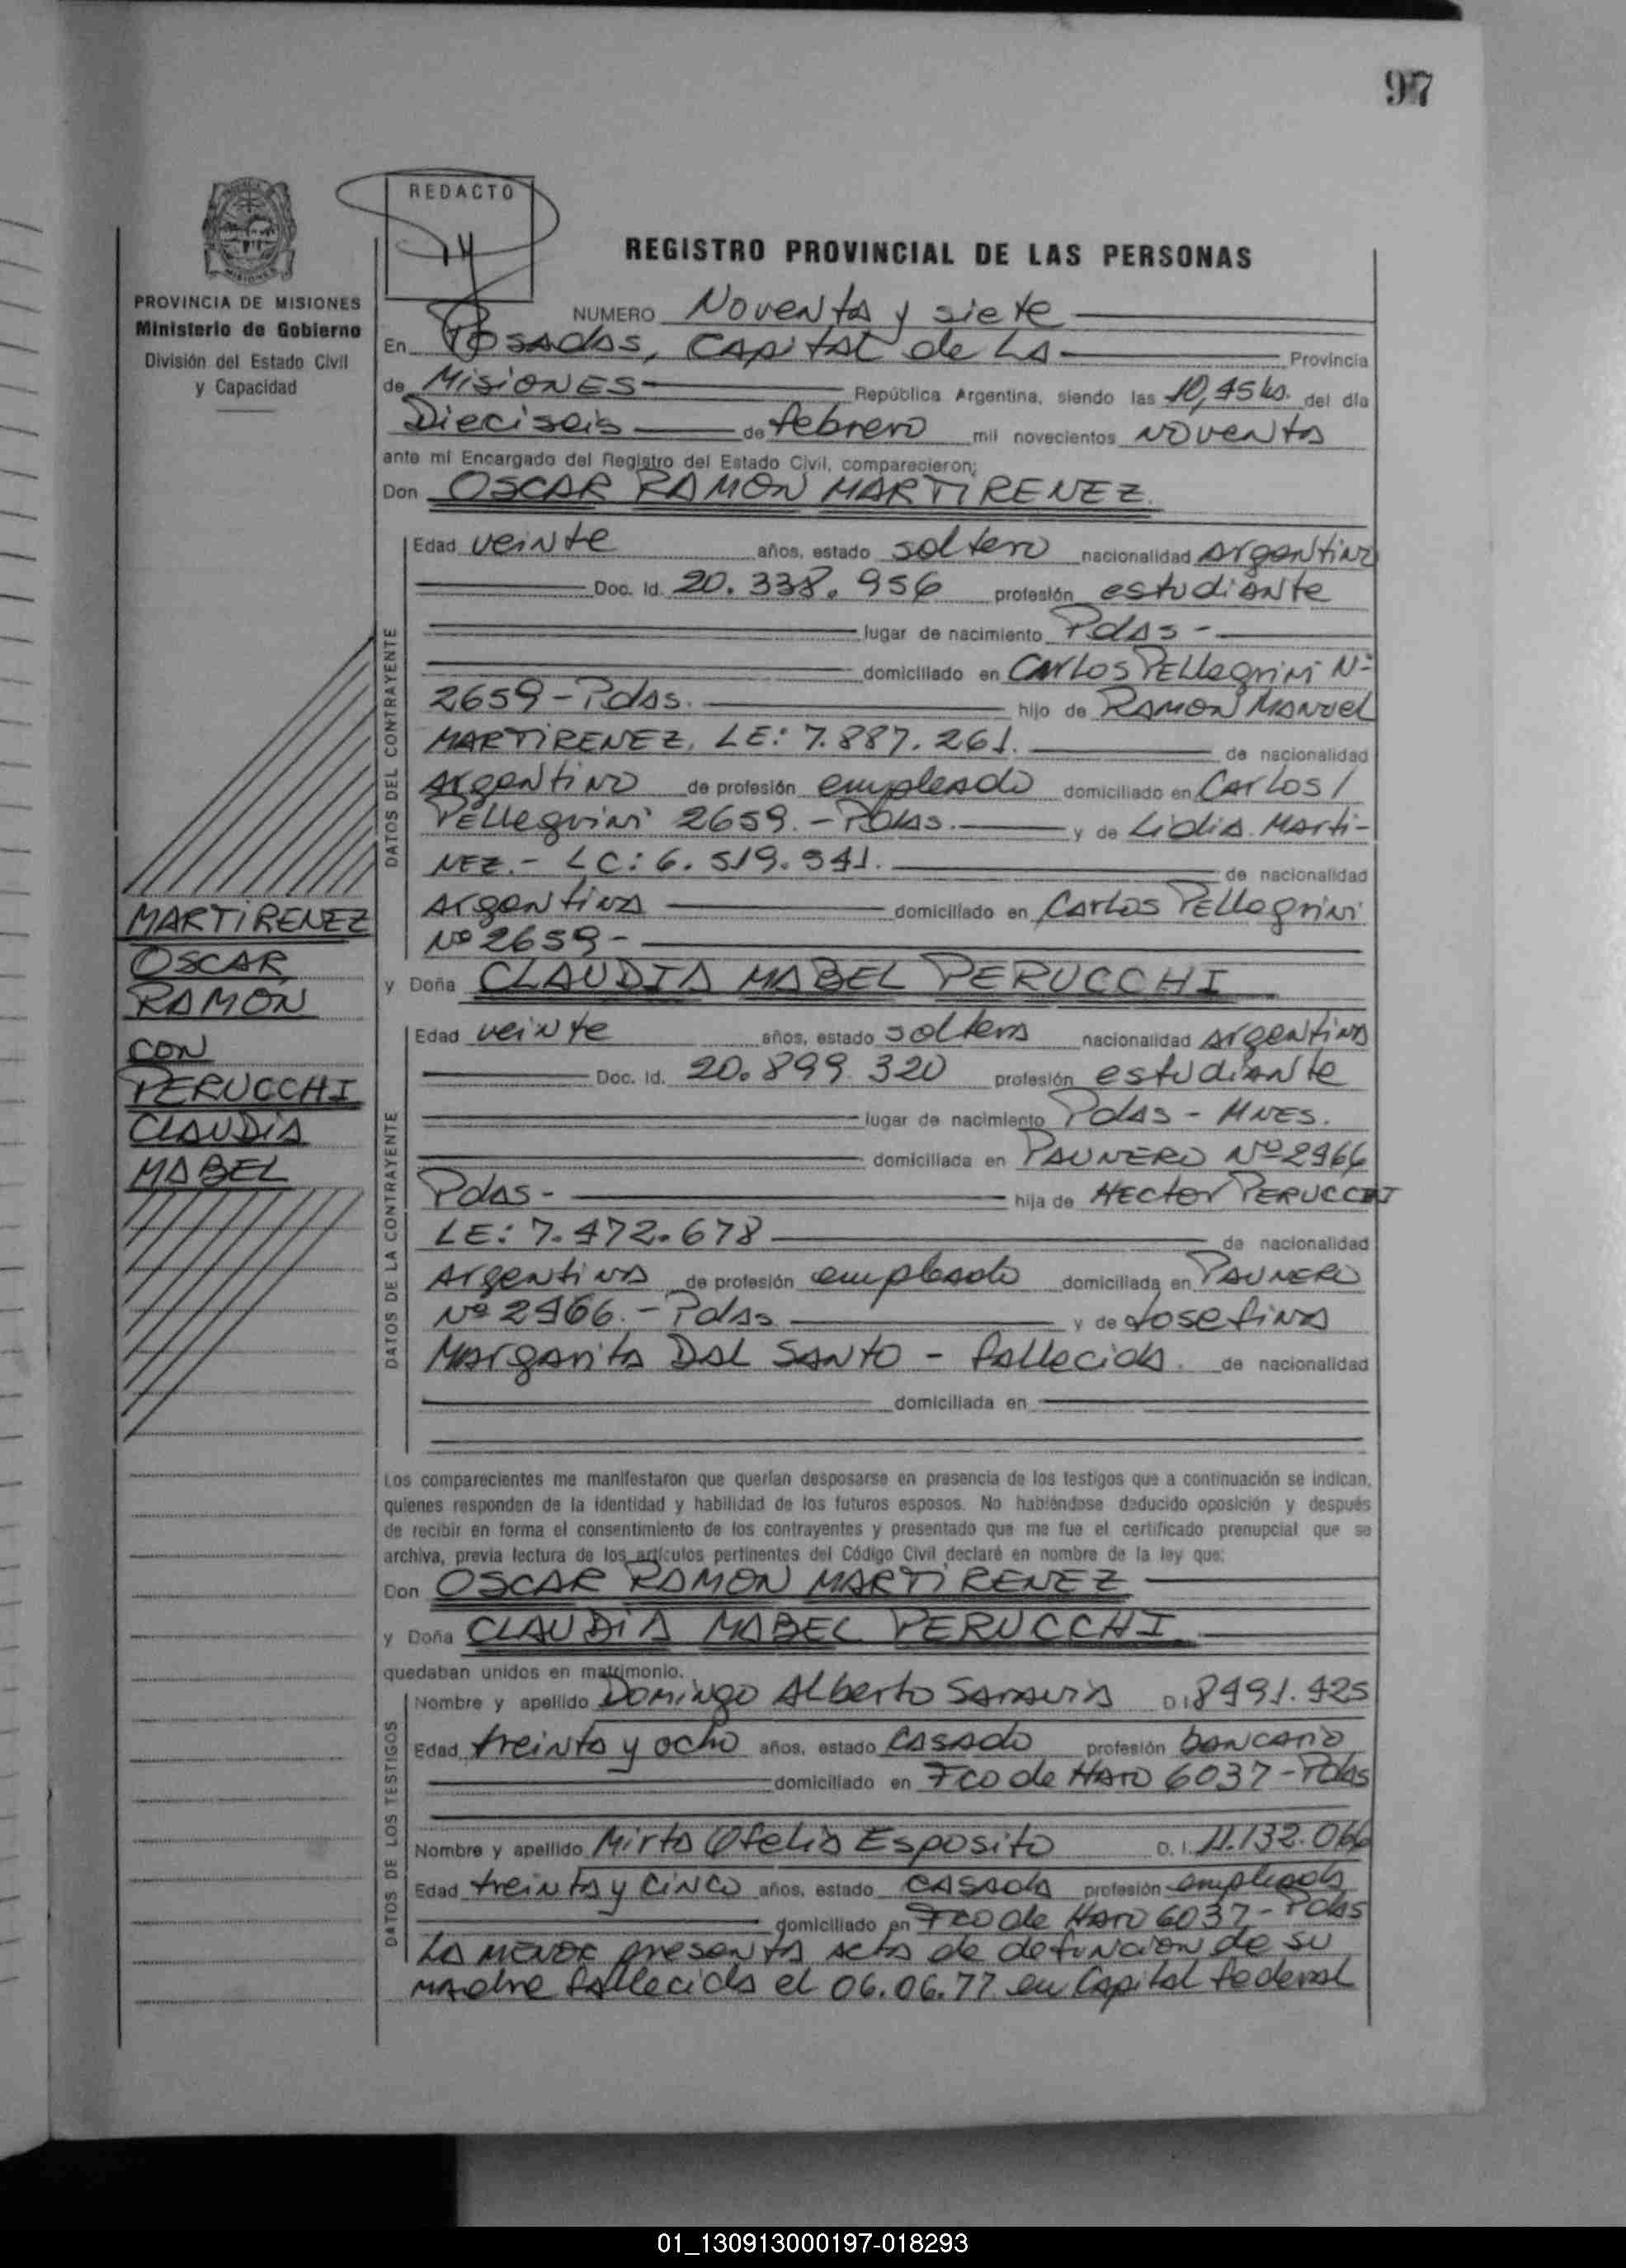 97
REDACTO
REGISTRO PROVINCIAL DE LAS PERSONAS
PROVINCIA DE MISIONES
Ministerio de Gobierno
División del Estado Civil
y Capacidad
NUMERO Noventa y siete
En Posadas, Capital de la Provincia
de Misiones República Argentina, siendo las 10,45 hs. del día
Dieciseis de febrero mil novecientos noventa
ante mi Encargado del Registro del Estado Civil, comparecieron:
Don OSCAR RAMON MARTIRENEZ
DATOS DEL CONTRAYENTE
Edad veinte años, estado soltero nacionalidad Argentino
Doc. Id. 20.338.956 profesión estudiante
lugar de nacimiento Pdas-
domiciliado en Carlos Pellegrini Nº
2659-Pdas. hijo de Ramon Manuel
MARTIRENEZ, LE: 7.887.261. de nacionalidad
Argentino de profesión empleado domiciliado en Carlos /
Pellegrini 2659.-Pdas. y de Lidia Marti-
nez.- LC: 6.519.541. de nacionalidad
Argentina domiciliado en Carlos Pellegrini
Nº 2659-
y Doña CLAUDIA MABEL PERUCCHI
DATOS DE LA CONTRAYENTE
Edad veinte años, estado soltera nacionalidad Argentina
Doc. Id. 20.899.320 profesión estudiante
lugar de nacimiento Pdas - Mnes.
domiciliada en Paunero Nº 2966
Pdas- hija de Hector PERUCCHI
LE: 7.472.678 de nacionalidad
Argentina de profesión empleado domiciliada en Paunero
Nº 2966.-Pdas y de Josefina
Margarita Dal Santo - fallecida. de nacionalidad
domiciliada en
MARTIRENEZ
OSCAR
RAMON
CON
PERUCCHI
CLAUDIA
MABEL
Los comparecientes me manifestaron que querían desposarse en presencia de los testigos que a continuación se indican,
quienes responden de la identidad y habilidad de los futuros esposos. No habiéndose deducido oposición y después
de recibir en forma el consentimiento de los contrayentes y presentado que me fue el certificado prenupcial que se
archiva, previa lectura de los artículos pertinentes del Código Civil declaré en nombre de la ley que:
Don OSCAR RAMON MARTIRENEZ
y Doña CLAUDIA MABEL PERUCCHI
quedaban unidos en matrimonio.
DATOS DE LOS TESTIGOS
Nombre y apellido Domingo Alberto Saravia D.I. 8491.425
Edad treinta y ocho años, estado casado profesión bancario
domiciliado en Fco de Haro 6037-Pdas
Nombre y apellido Mirta Ofelia Esposito D. I. 11.132.066
Edad treinta y cinco años, estado casada profesión empleada
domiciliado en Fco de Haro 6037-Pdas
La menor presenta acta de defuncion de su
madre fallecida el 06.06.77 en Capital Federal
01_130913000197-018293